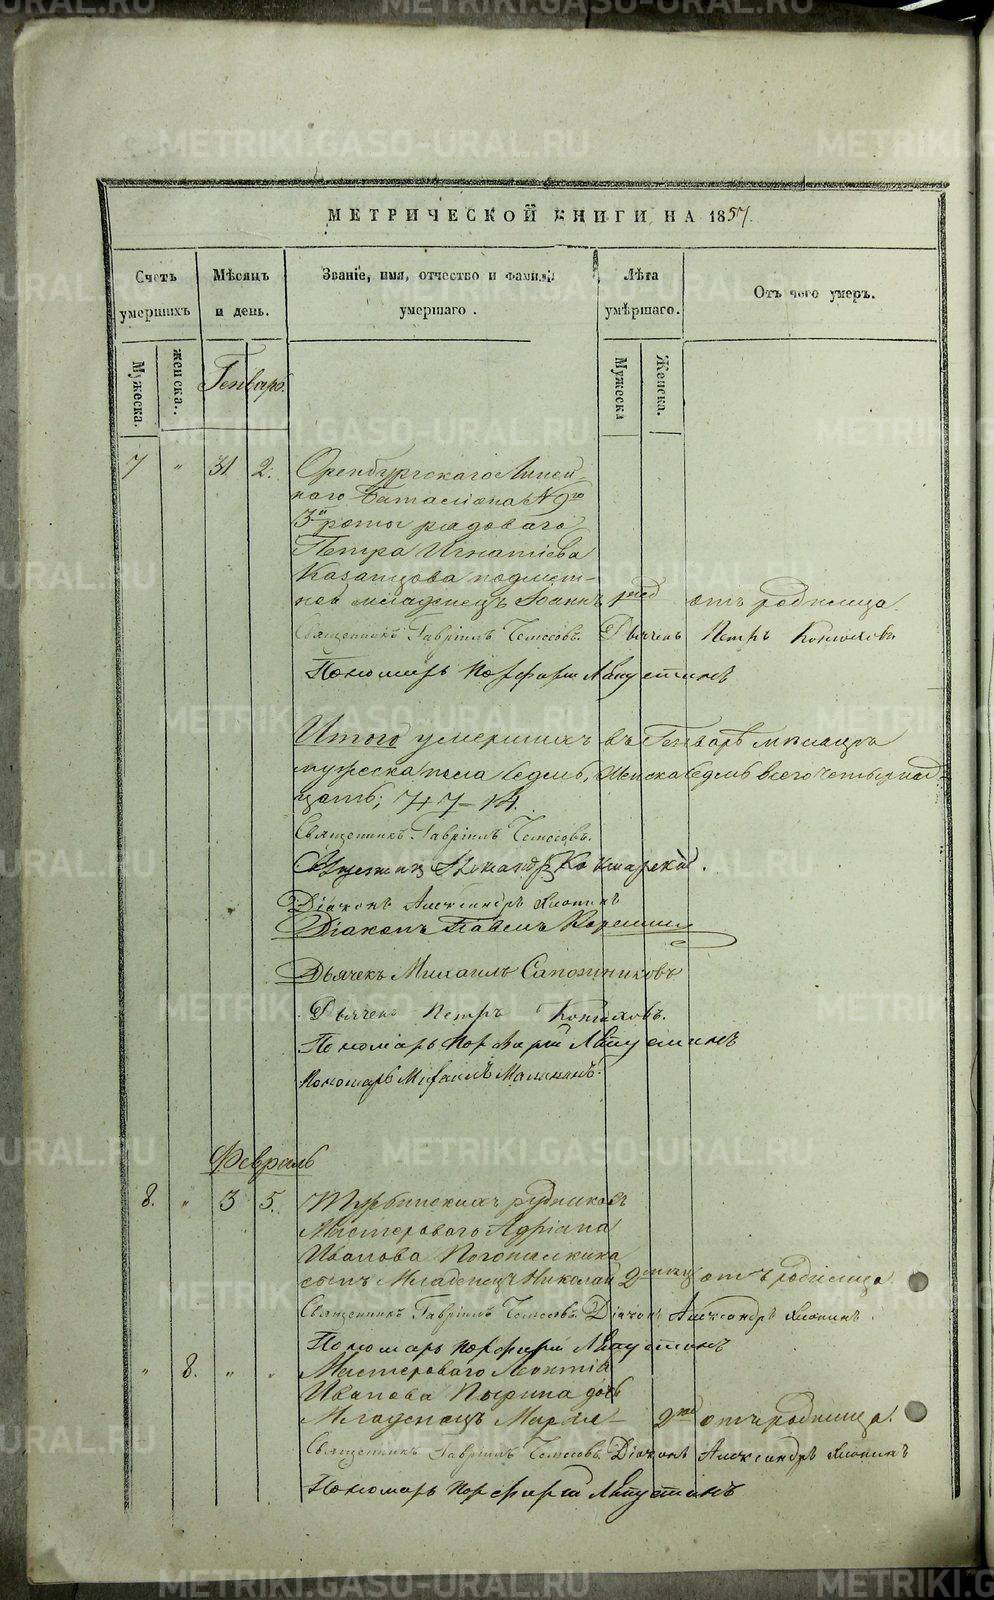 МЕТРИЧЕСКОЙ КНИГИ НА 1857.
Счетъ умершихъ
Мужеска.
женска.
Мѣсяцъ и день.
Званіе, имя, отчество и фамилія умершаго.
Лѣта умѣршаго.
Мужеска
Женска.
Отъ чего умеръ.
Генварь.
7 " 31 2. Оренбургскаго Линей-
наго Баталіона N 9го
3й роты рядоваго
Петра Игнатіева
Казанцова
младенецъ Іоаннъ отъ родимца.
Священникъ Гавріилъ Дьячекъ Петръ Конюховъ
Пономарь Порфирій Лапустинъ
Итого умершихъ въ Генварѣ мѣсяцѣ
мужеска пола седмь, женска седмь всего четырнад-
цать; 7+7–14.
Священникъ Гавріилъ
Священникъ
Діаконъ Александръ
Діаконъ Павелъ
Дьячекъ Михаилъ Сапожниковъ
Дьячекъ Петръ Конюховъ.
Пономарь Порфирій Лапустинъ
Пономарь Михаилъ Малининъ.
Февраль
8. " 3 5. Турьинскихъ рудниковъ
Мастероваго Адріана
Иванова
сынъ Младенецъ Николай отъ родимца.
Священникъ Гавріилъ Діаконъ Александръ
Пономарь Порфирій Лапустинъ
" 8. " " Мастероваго Леонтія
Иванова дочь
Младенецъ Марія отъ родимца.
Священникъ Гавріилъ Діаконъ Александръ
Пономарь Порфирій Лапустинъ
METRIKI.GASO-URAL.RU